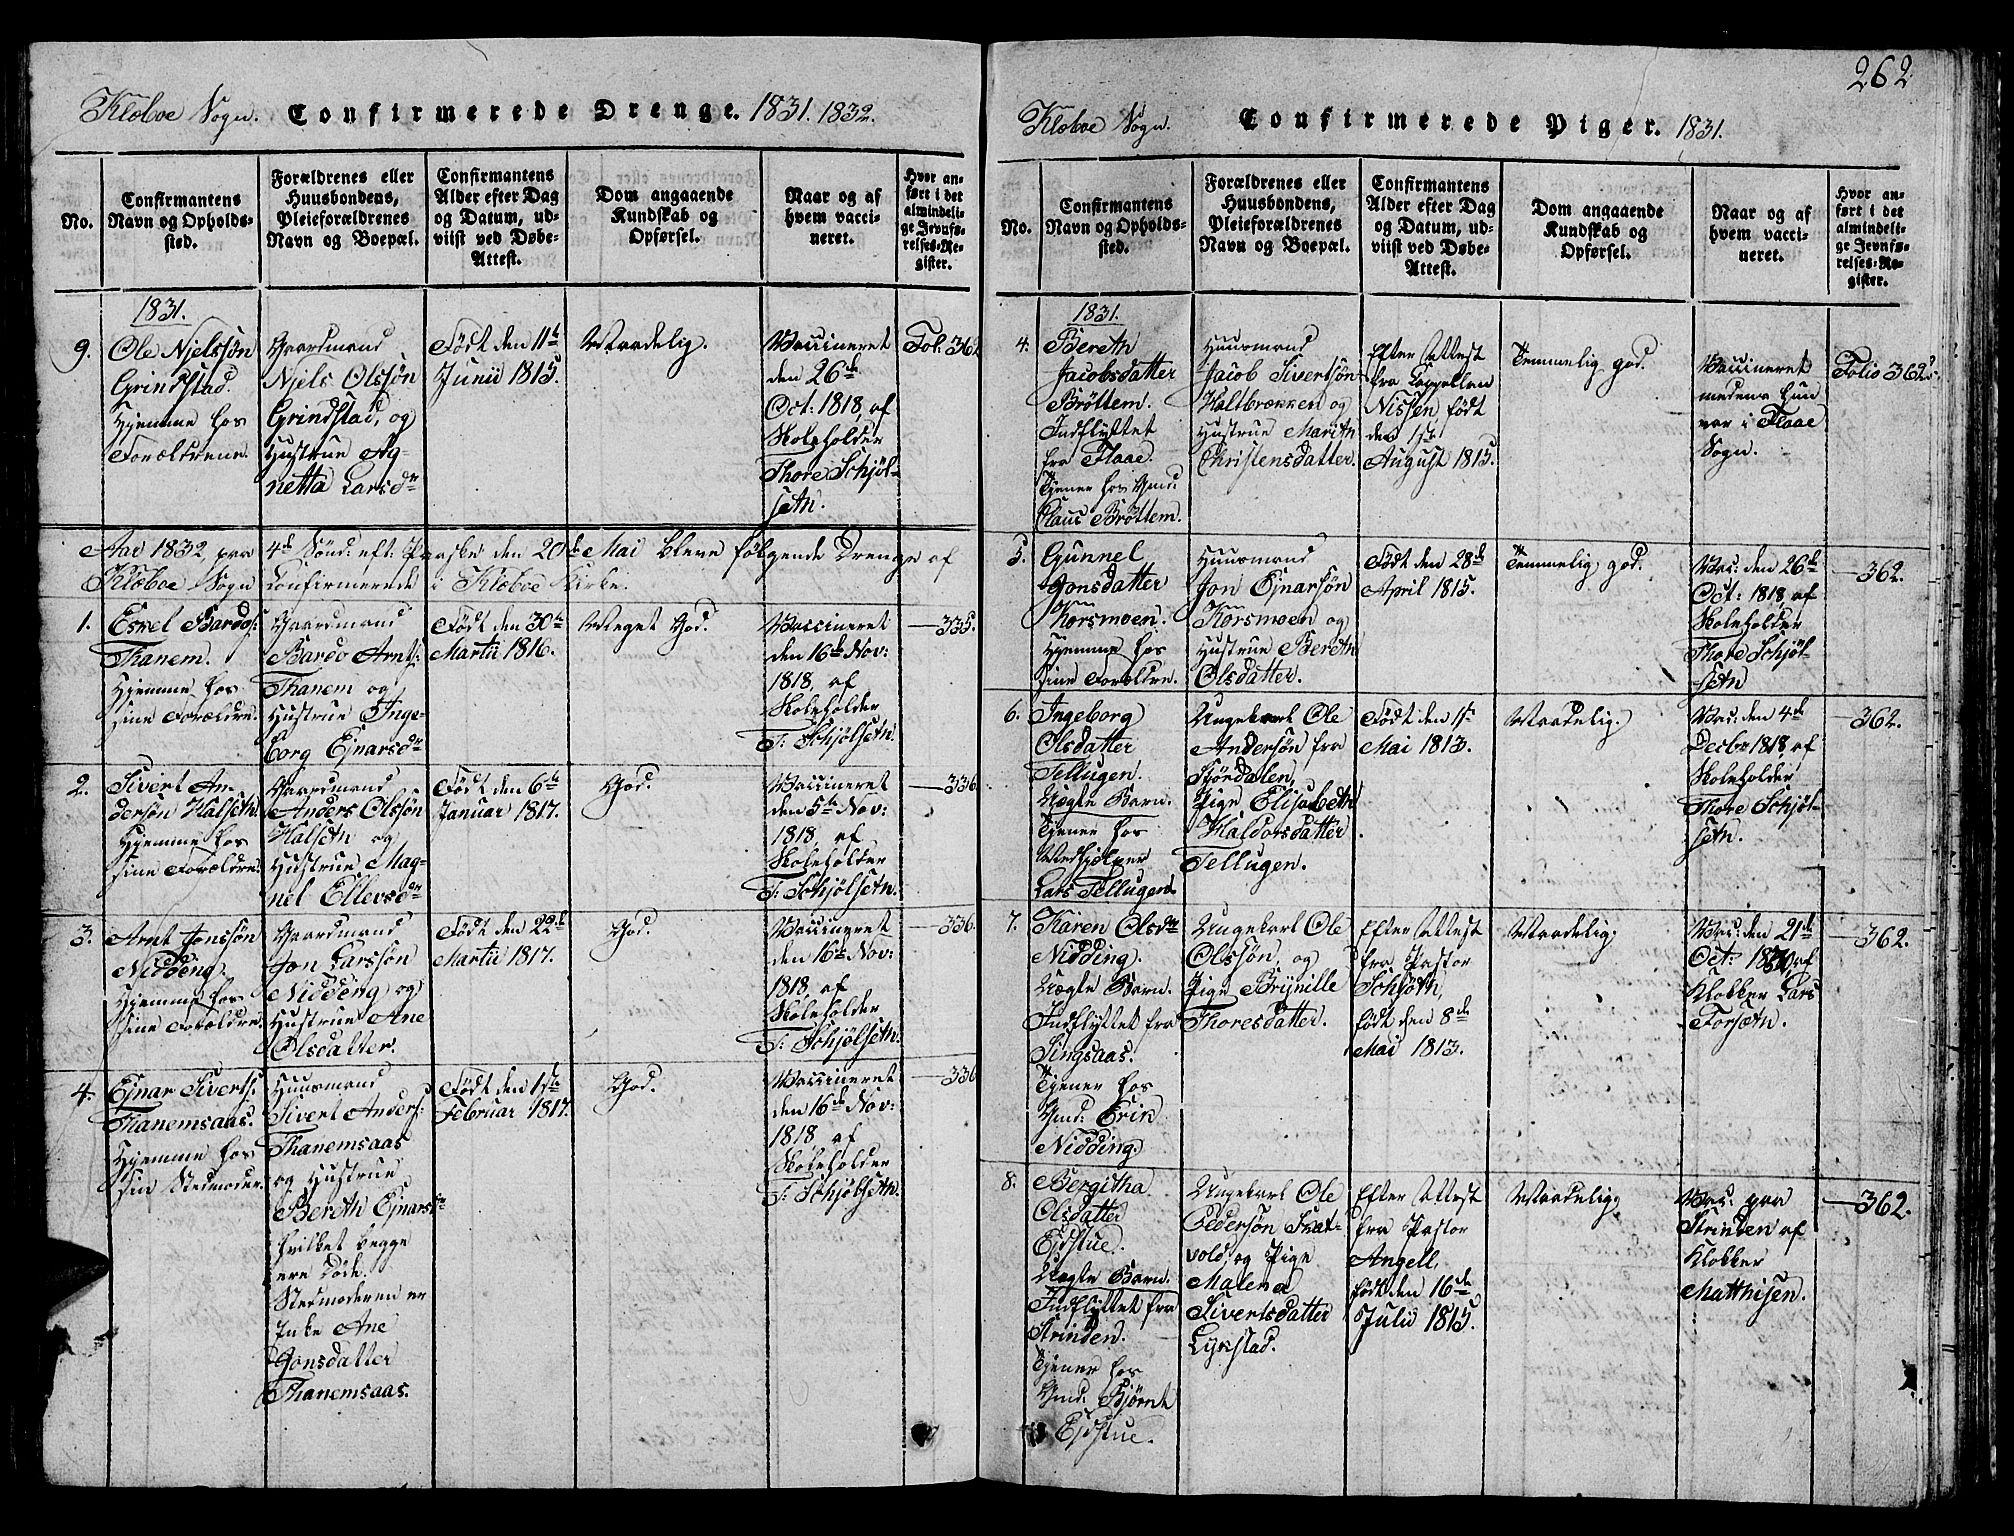 262
Klæboe Sogn. Confirmerede Drenge. 1831. 1832.
No.
Confirmantens
Navn og Opholds-
sted.
Forældrenes eller
Huusbondens,
Pleieforældrenes
Navn og Boepæl.
Confirmantens
Alder efter Dag
og Datum, ud-
viist ved Døbe-
Attest.
Dom angaaende
Kundskab og
Opførsel.
Naar og af
hvem vacci-
neret.
Hvor an-
ført i det
almindeli-
ge Jevnfø-
relses-Re-
gister.
1831.
9.
Ole Njelssøn
Grindstad.
Hjemme hos
Forældrene.
Gaardmand
Njels Olssøn
Grindstad, og
Hustrue Ag-
netta Larsdr
Født den 11te
Junii 1815.
Maadelig.
Vaccineret
den 26de
Oct. 1818, af
Skoleholder
Thore Schjøl-
seth.
Fol. 362
Aar 1832, paa 4de Sønd: eft: Paaske den 20de Mai bleve følgende Drenge af
Klæboe Sogn confirmerede i Klæboe Kirke.
1.
Esvel Bardos:
Thanem.
Hjemme hos
sine Forældre.
Gaardmand
Bardo Arnts:
Thanem og
Hustrue Inge-
borg Ejnarsdr
Født den 30te
Martii 1816.
Meget God.
Vaccineret
den 16de Nov:
1818, af
Skoleholder
T: Schjølseth.
335.
2.
Sivert An-
dersøn Halseth.
Hjemme hos
sine Forældre.
Gaardmand
Anders Olssøn
Halseth og
Hustrue Mag-
nel Ellevsdr
Født den 6te
Januar 1817.
God.
Vaccineret
den 5te Nov:
1818, af
Skoleholder
T: Schjølseth.
336.
3.
Arnt Jonssøn
Nidding.
Hjemme hos
sine Forældre.
Gaardmand
Jon Larssøn
Nidding og
Hustrue Ane
Olsdatter.
Født den 22de
Martii 1817.
God.
Vaccineret
den 16de Nov:
1818, af
Skoleholder
T: Schjølseth.
336.
4.
Ejnar Siverts:
Thanemsaas.
Hjemme hos
sin Stedmoder.
Huusmand
Sivert Anders:
Thanemsaas
og Hustrue
Bereth Ejnarsdr
hvilket begge
ere døde.
Stedmoderen er
Enke Ane
Jonsdatter
Thanemsaas.
Født den 1ste
Februar 1817.
God.
Vaccineret
den 16de Nov:
1818, af
Skoleholder
T: Schjølseth.
336
Klæboe Sogn. Confirmerede Piger. 1831.
No.
Confirmantens
Navn og Opholds-
sted.
Forældrenes eller
Huusbondens,
Pleieforældrenes
Navn og Boepæl.
Confirmantens
Alder efter Dag
og Datum, ud-
viist ved Døbe-
Attest.
Dom angaaende
Kundskab og
Opførsel.
Naar og af
hvem vacci-
neret.
Hvor an-
ført i det
almindeli-
ge Jevnfø-
relses-Re-
gister.
1831.
4.
Bereth
Jacobsdatter
Brøttem.
Indflyttet
fra Flaae.
Tjener hos Gmd:
Claus Brøttem.
Huusmand
Jacob Sivertsøn
Haltbrækken og
Hustrue Marith
Christensdatter.
Efter Attest
fra Cappellan
Nissen født
den 1ste
August 1815.
Temmelig god.
Vaccineret
medens hun
var i Flaae
Sogn.
Folio 362.
5.
Gunnel
Jonsdatter
Korsmoen.
Hjemme hos
sine Forældre.
Huusmand
Jon Ejnarsøn
Korsmoen og
Hustrue Bereth
Olsdatter.
Født den 28de
April 1815.
Temmelig god.
Vac: den 26de
Oct: 1818, af
Skoleholder
Thore Schjøl-
seth
362.
6.
Ingeborg
Olsdatter
Tellugen.
Uægte Barn.
Tjener hos
Medhjelper
Lars Tellugen.
Ungekarl Ole
Andersøn fra
Stjørdalen,
Pige Elisabeth
Haldorsdatter
Tellugen.
Født den 1ste
Mai 1813.
Maadelig.
Vac: den 4de
Decbr 1818 af
Skoleholder
Thore Schjøl-
seth.
362.
7.
Karen Olsdr
Nidding.
Uægte Barn.
Indflyttet fra
Singsaas.
Tjener hos
Gmd: Erik
Nidding.
Ungekarl Ole
Olssøn, og
Pige Brynille
Thoresdatter.
Efter Attest
fra Pastor
Schjøth,
født den 8de
Mai 1813.
Maadelig.
Vac: den 21de
Oct: af
Klokker Lars
Forseth.
362.
8.
Bergitha
Olsdatter
Ejdstue.
Uægte Barn.
Indflyttet fra
Strinden.
Tjener hos
Gmd: Bjørnt
Ejdstue.
Ungekarl Ole
Pedersøn Svat-
vold, og Pige
Malena
Sivertsdatter
Lykstad.
Efter Attest
fra Pastor
Angell,
født den 16de
Julii 1815.
Maadelig.
Vac: paa
Strinden af
Klokker
Matthisen.
362.